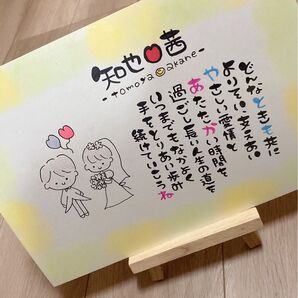 知地 茜
-tomoya akane-
どんなときも共に
よりそい支えあい
やさしい愛情と
あたたかい時間を
過ごし長い人生の道を
いつまでもなかよく
手をとりあい歩み
続けていこうね